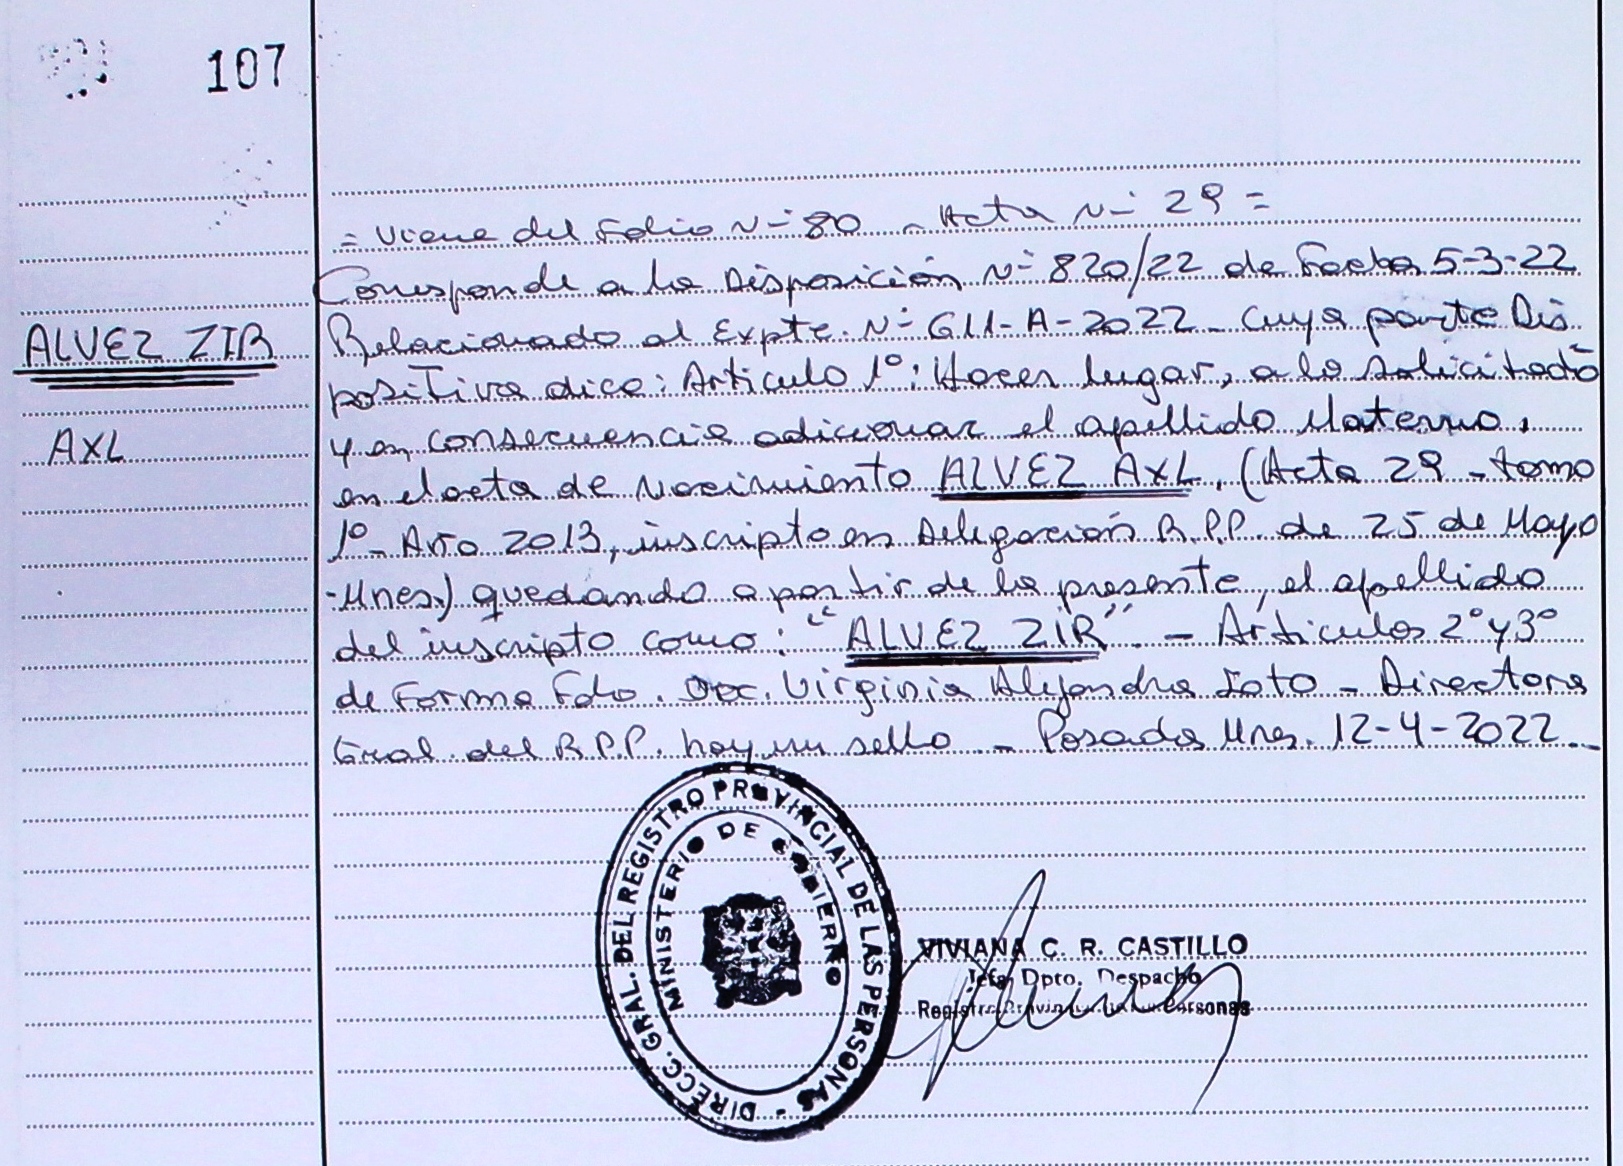 107
= Viene del Folio Nº 80 - Acta Nº 29 =
Corresponde a la Disposición Nº 820/22 de Fecha 5-3-22
ALVEZ ZIR
Relacionado al Expte. Nº 611-A-2022 - cuya parte Dis
positiva dice: Articulo 1º: Hacer lugar, a lo solicitado
AXL
y en consecuencia adicionar el apellido Materno,
en el acta de Nacimiento ALVEZ AXL, (Acta 29 - tomo
1º - Año 2013, inscripto en Delegación R.P.P. de 25 de Mayo
-Mnes.) quedando a partir de la presente, el apellido
del inscripto como: "ALVEZ ZIR" - Articulos 2º y 3º
de Forma Fdo. Virginia Alejandra Soto - Directora
Gral. del R.P.P. hay un sello - Posadas Mnes. 12-4-2022.-
DIRECC. GRAL. DEL REGISTRO PROVINCIAL DE LAS PERSONAS -
MINISTERIO DE GOBIERNO
VIVIANA C. R. CASTILLO
Jefa Dpto. Despacho
Registro Provincial Personas